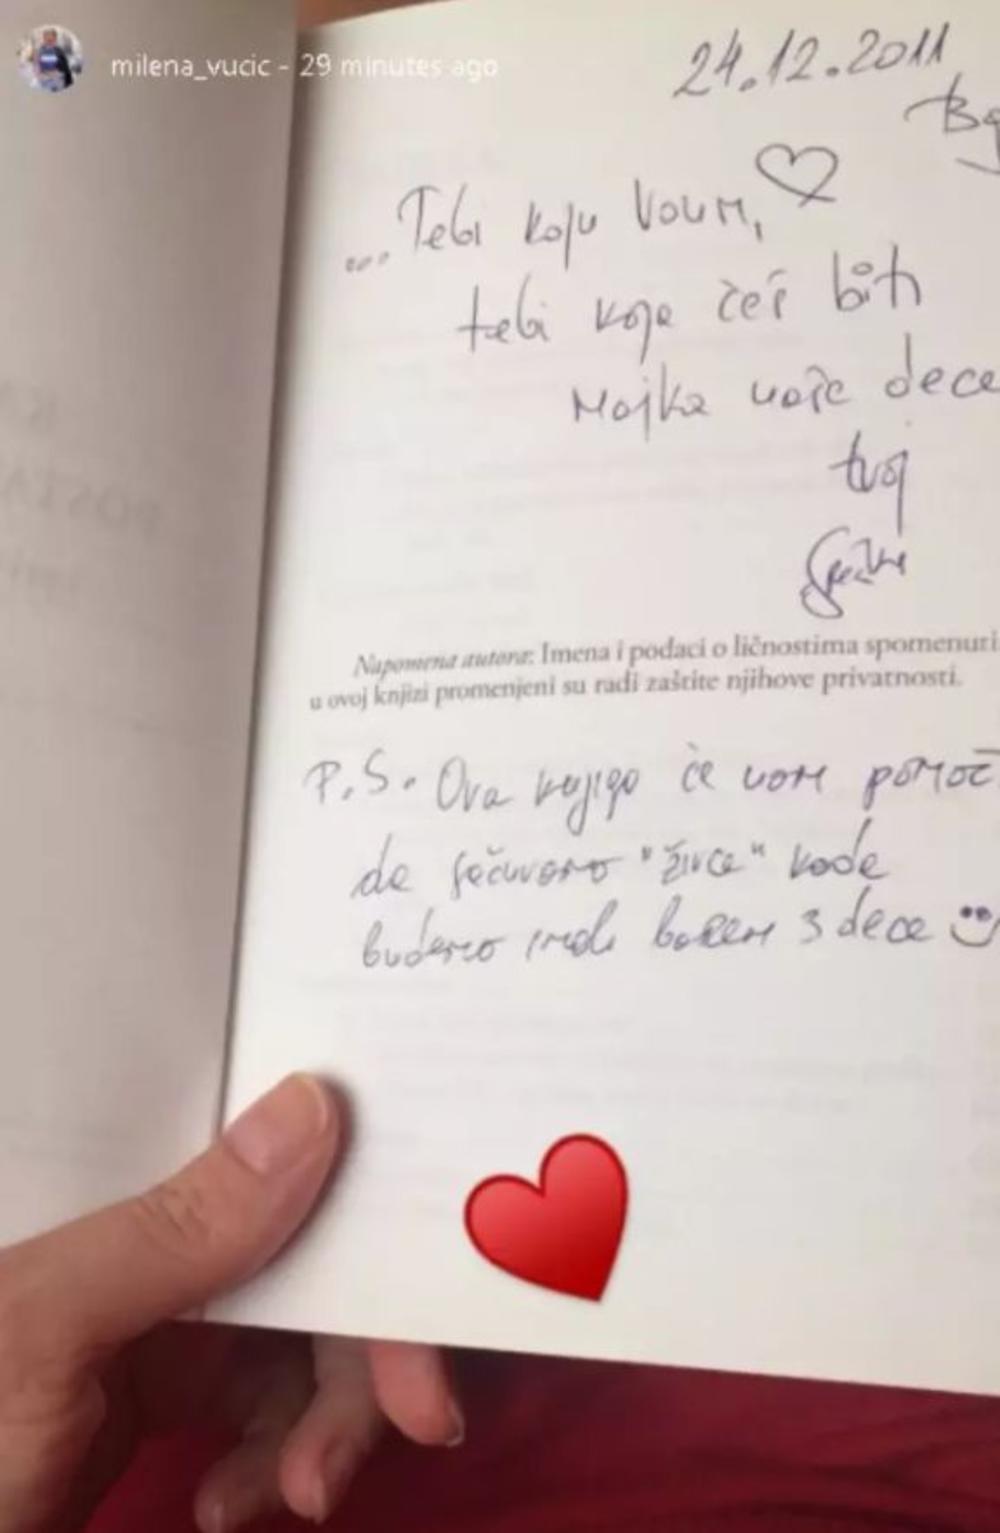 milena_vucic - 29 minutes ago
24.12.2011
Bg
... Tebi koju volim,
tebi koja ćeš biti
majka naše dece
tvoj
Napomena autora: Imena i podaci o ličnostima spomenuti
u ovoj knjizi promenjeni su radi zaštite njihove privatnosti.
P.S. Ova knjiga će nam pomoć
da sačuvamo "živce" kada
budemo imali barem 3 dece